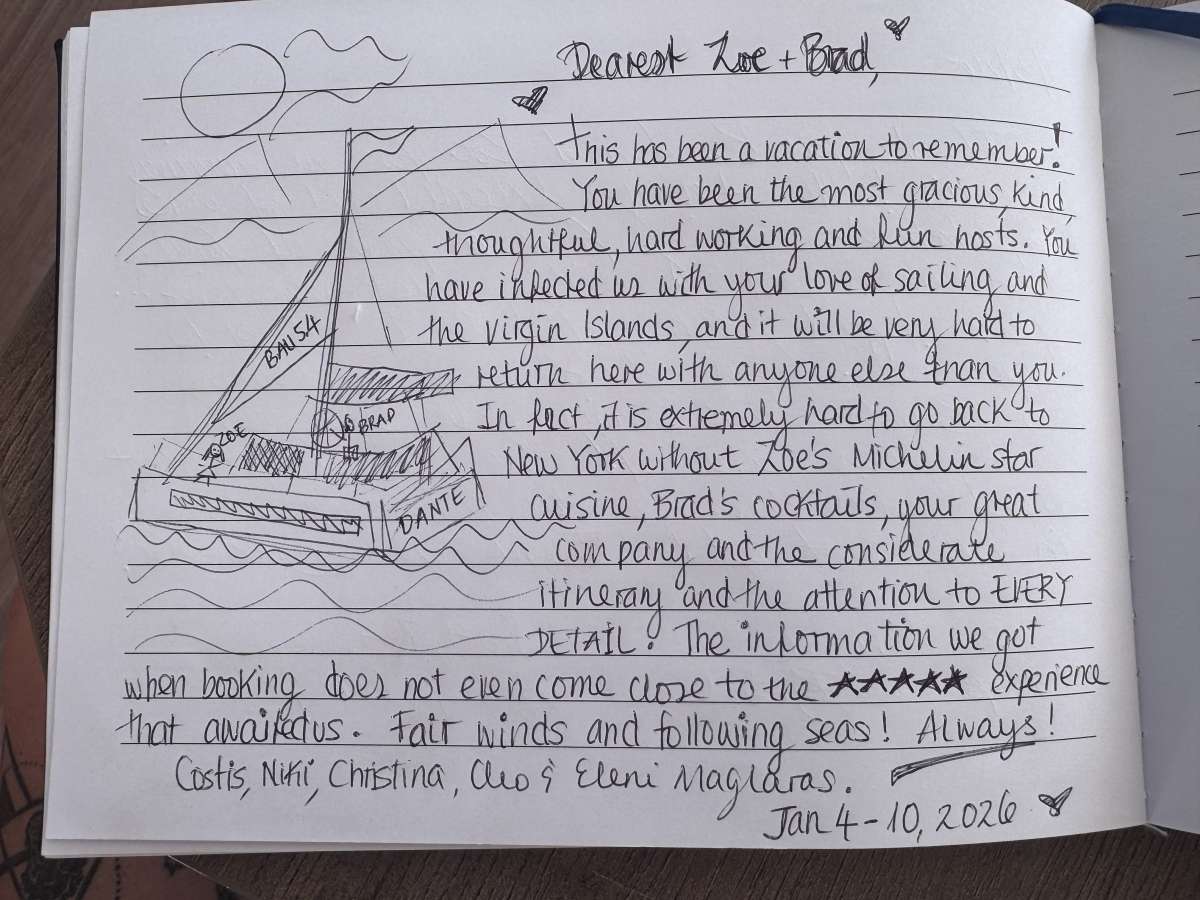 Dearest Zoe + Brad,
This has been a vacation to remember!
You have been the most gracious, kind,
thoughtful, hard working and fun hosts. You
have infected us with your love of sailing and
the Virgin Islands, and it will be very hard to
return here with anyone else than you.
In fact, it is extremely hard to go back to
New York without Zoe's Michelin star
cuisine, Brad's cocktails, your great
company and the considerate
itinerary and the attention to EVERY
DETAIL! The information we got
when booking does not even come close to the ★★★★★ experience
that awaited us. Fair winds and following seas! Always!
Costis, Niki, Christina, Cleo & Eleni Maglaras.
Jan 4-10, 2026
BALI 5.4
ZOE
BRAD
DANTE